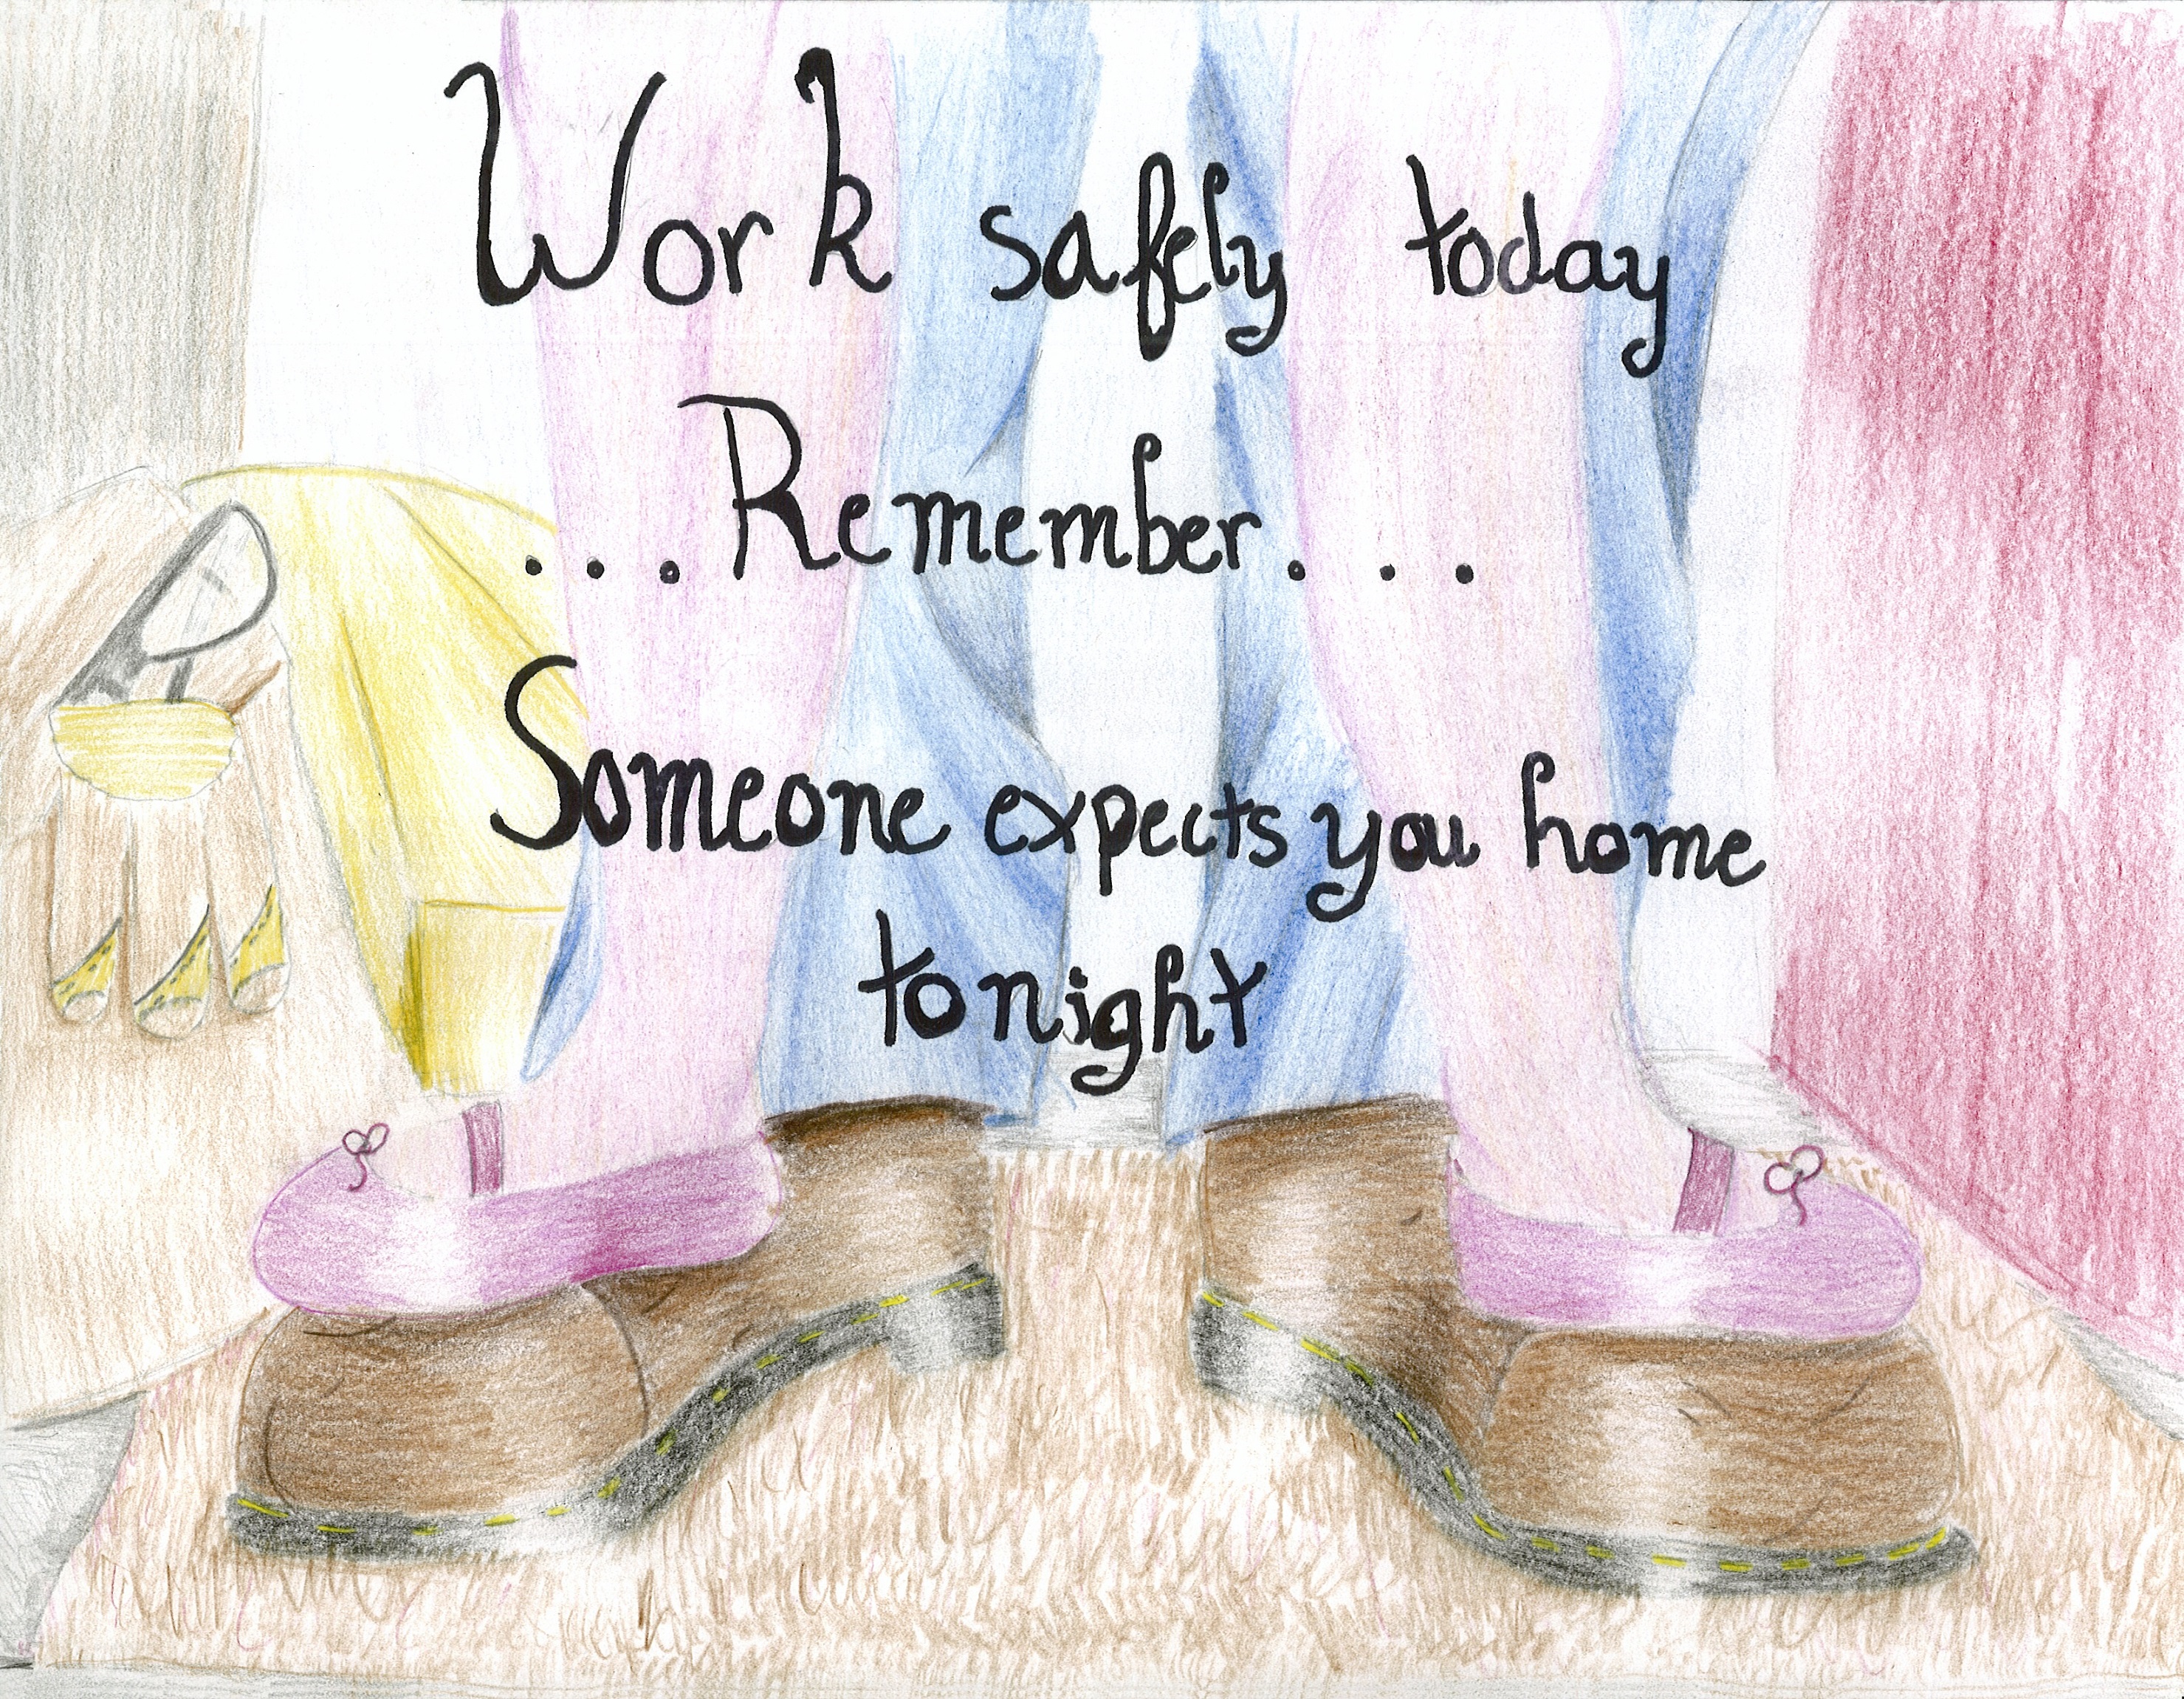 Work safely today
...Remember...
Someone expects you home
tonight